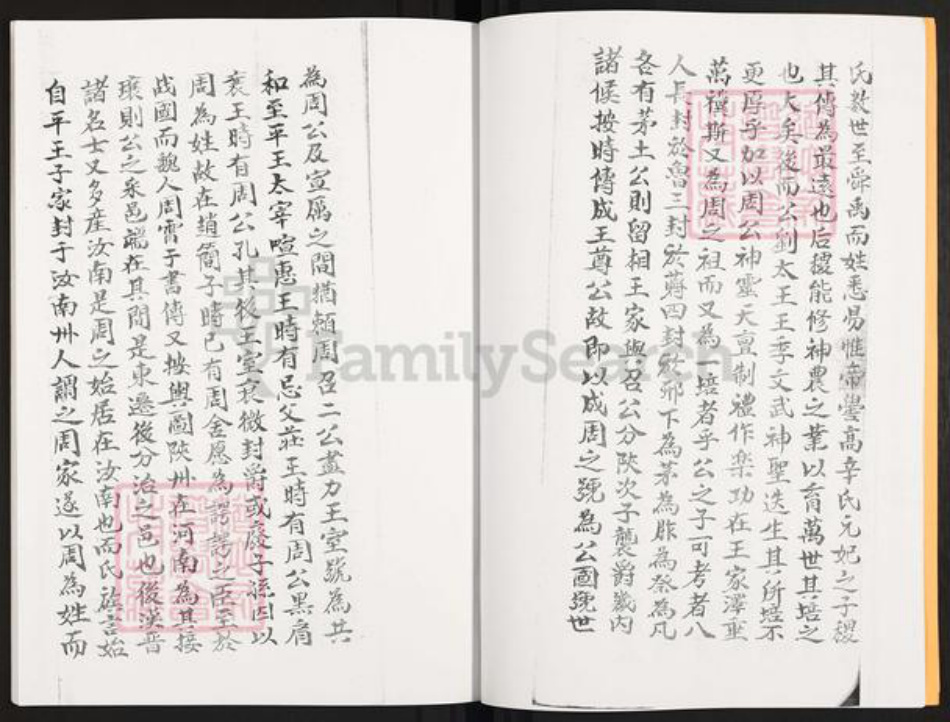 氏数世至舜禹而姓悉易惟帝嚳高辛氏元妃之子稷
其傳為最遠也后稷能修神農之業以育萬世其培之
也大矣後而公劉太王王季文武神聖迭生其所培不
更厚乎加以周公神靈天亶制禮作楽功在王家澤垂
萬禩斯又為周之祖而又為培者乎公之子可考者八
人長封於魯三封於蒋四封於邢下為茅為胙為祭為凡
各有茅土公則留相王家與召公分陝次子襲爵畿内
諸侯按時傳成王尊公故即以成周之號為公國號世
為周公及宣厲之間猶頼周召二公盡力王室號為共
和至平王太宰喧惠王時有忌父莊王時有周公黒肩
襄王時有周公孔其後王室衰微封爵或廢子孫因以
周為姓故在趙簡子時已有周舍愿為諤諤之臣至於
战國而魏人周霄于書傳又按輿圖陝州在河南為其接
壤則公之采邑端在其間是東遷後分治之邑也後漢晋
諸名士又多産汝南是周之始居在汝南也而氏族言始
自平王子家封于汝南州人謂之周家遂以周為姓而
FamilySearch